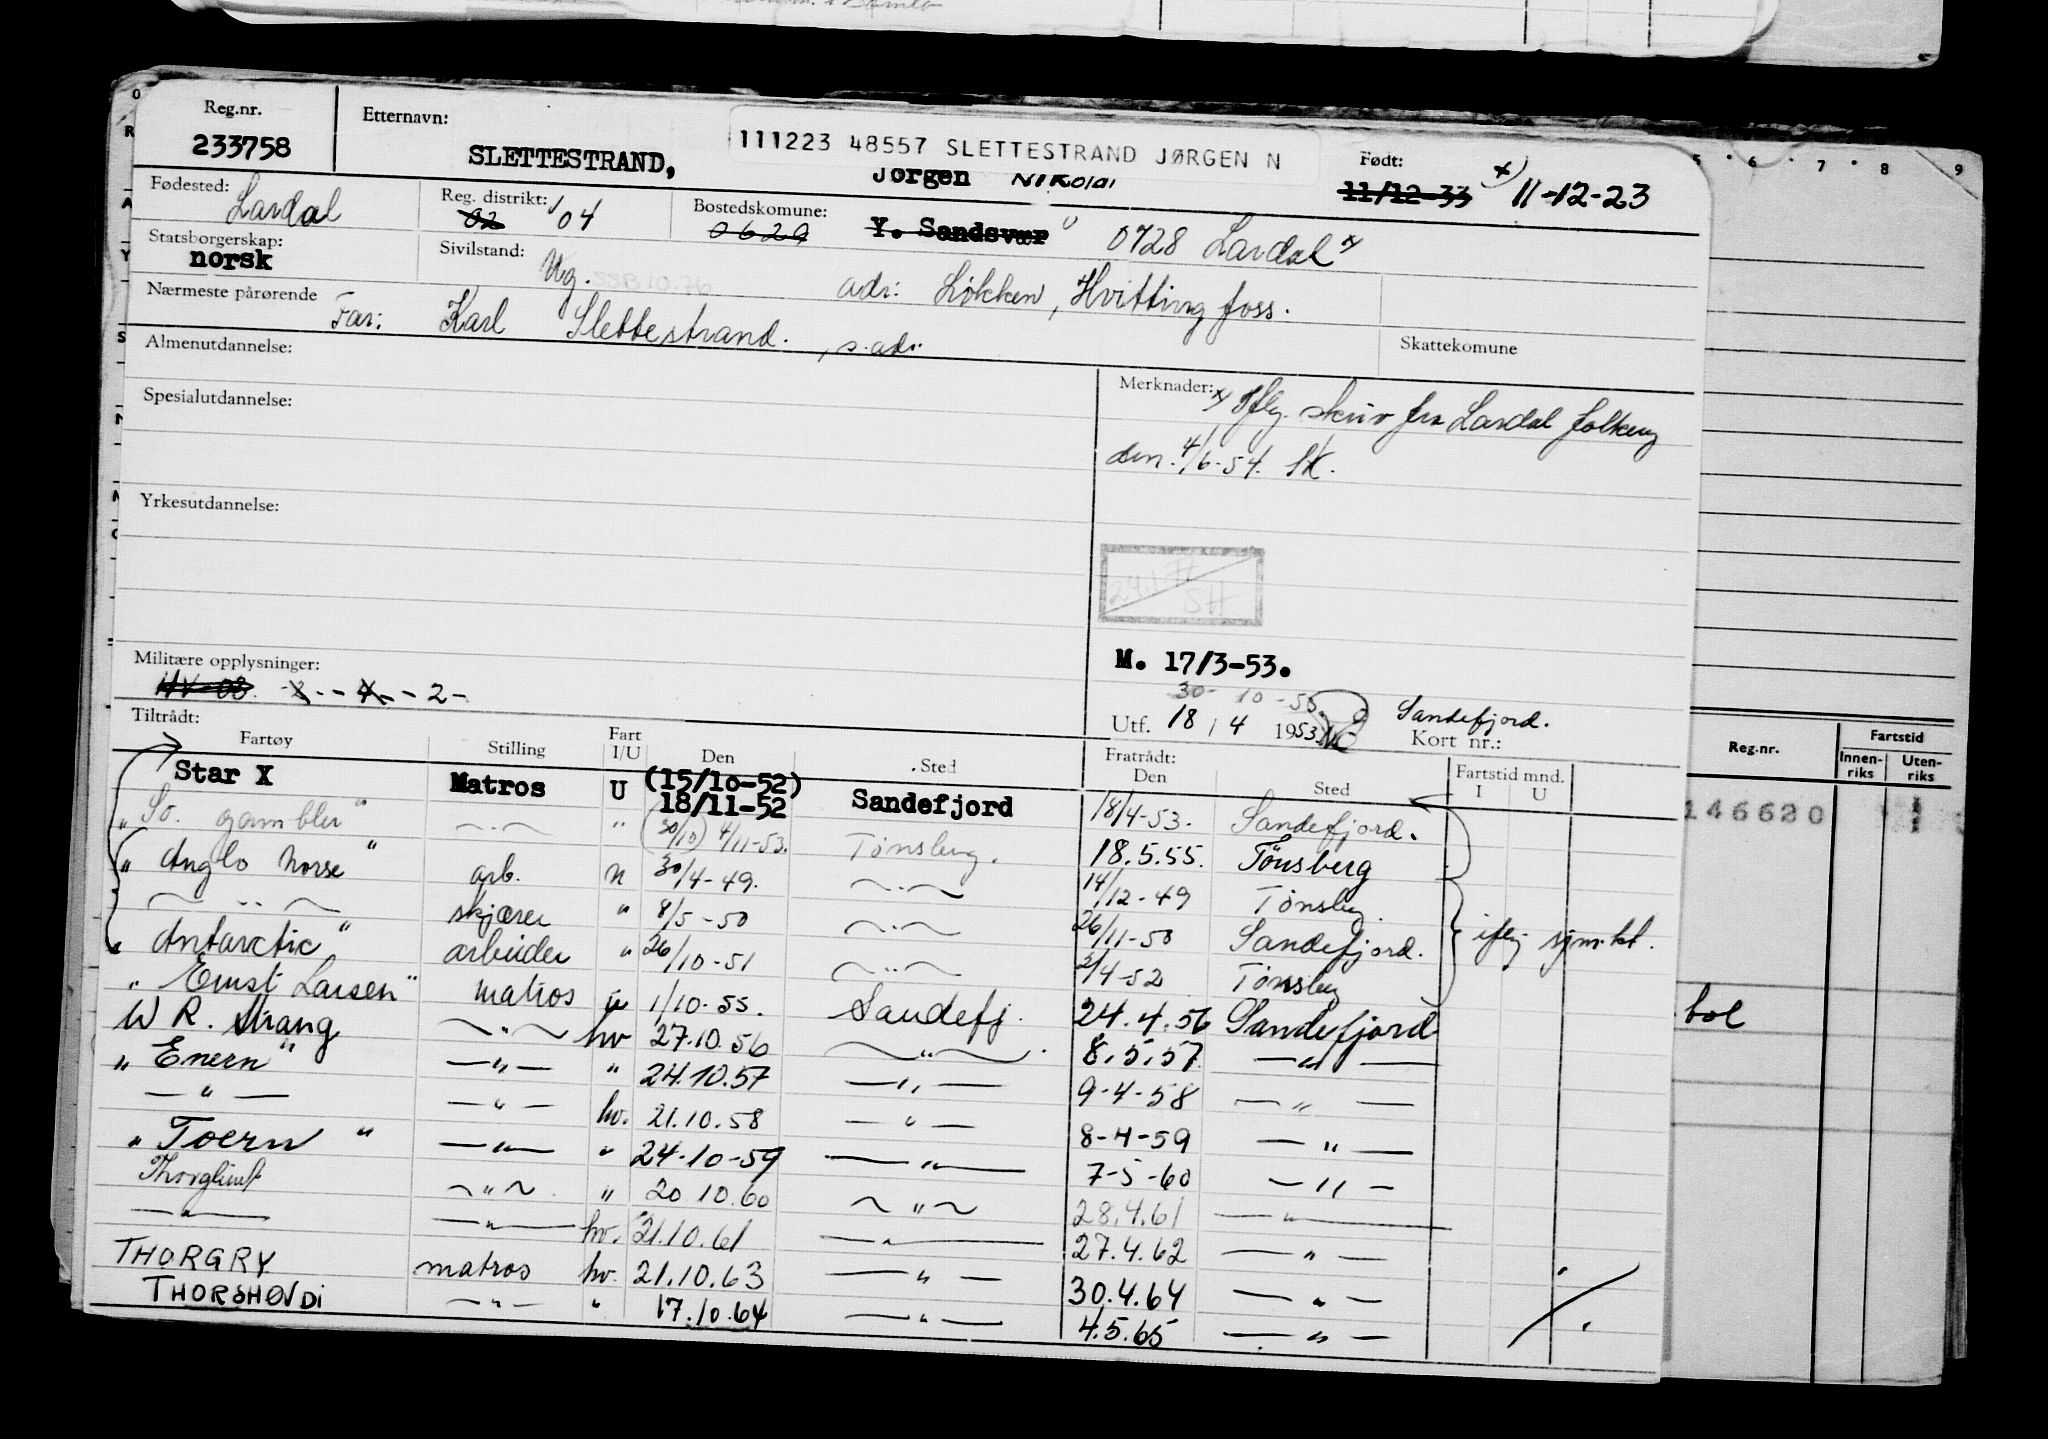 Reg.nr.
233758
Etternavn:
SLETTESTRAND,
111223 48557 SLETTESTRAND JØRGEN N
Jørgen Nikolai
Født:
11/12-33 x) 11-12-23
Fødested: Lardal
Reg. distrikt: 02 104
Bostedskomune: 0629 Y. Sandsvær 0728 Lardal x)
Statsborgerskap: norsk
Sivilstand: Ug.
SSB 10.76
adr: Løkken, Hvittingfoss.
Nærmeste pårørende
Far: Karl Slettestrand. , s. adr.
Skattekomune
Almenutdannelse:
Merknader: x) Iflg. skriv fra Lardal folkereg
den. 4/6-54. SK.
Spesialutdannelse:
Yrkesutdannelse:
M. 17/3-53.
Militære opplysninger:
HV-08. -2-
30-10-53.
Utf. 18/4 1953
Sandefjord.
Kort nr.:
Tiltrådt:
Fratrådt:
Fartøy Stilling Fart I/U Den Sted Den Sted Fartstid mnd. I U
Star X Matros U (15/10-52) 18/11-52 Sandefjord 18/4-53. Sandefjord.
" So. gambler" -"- " (30/10) 4/11-53. Tønsberg. 18.5.55. Tönsberg
" Anglo Norse" arb. u 30/4-49. -"- 14/12-49 Tønsberg.
-"- skjærer " 8/5-50 -"- 26/11-50 Sandefjord. iflg sjm.kt.
" Antarctic" arbeider " 26/10-51 -"- 2/4-52 Tønsberg
" Ernst Larsen" matros u 1/10-55. Sandefj. 24.4.56 Sandefjord
W R. Strang -"- hv 27.10.56 -"- 8.5.57 -"-
" Enern" -"- " 24.10.57 -"- 9-4-58 -"-
-"- -"- hv. 21.10.58 -"- 8-4-59 -"-
" Toern " -"- " 24-10-59 -"- 7-5-60 -"-
Thorglimt -"- " 20 10.60 -"- 28.4.61 -"-
-"- -"- hv. 21.10.61 -"- 27.4.62 -"-
THORGRY matros hv. 21.10.63 -"- 30.4.64 -"-
THORSHØVDI -"- " 17.10.64 -"- 4.5.65 -"-
5 · 6 · 7 · 8 9
Reg.nr.
Fartstid
Innen-riks
Uten-riks
146620
bol